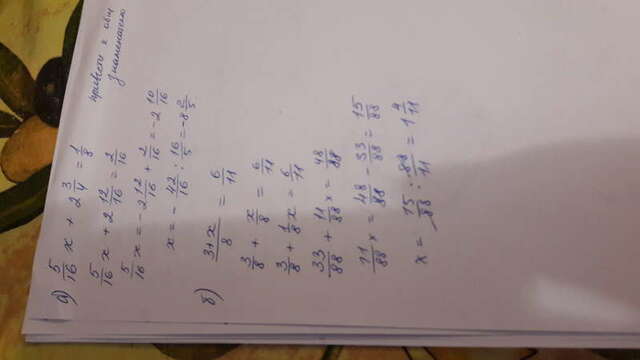 а) 5/16 x + 2 3/4 = 1/8
привести к общ
знаменателю
5/16 x + 2 12/16 = 2/16
5/16 x = - 2 12/16 + 2/16 = -2 10/16
x = - 42/16 : 16/5 = -8 2/5
б) 3+x/8 = 6/11
3/8 + x/8 = 6/11
3/8 + 1/8 x = 6/11
33/88 + 11/88 x = 48/88
11/88 x = 48/88 - 33/88 = 15/88
x = 15/88 : 88/11 = 1 4/11